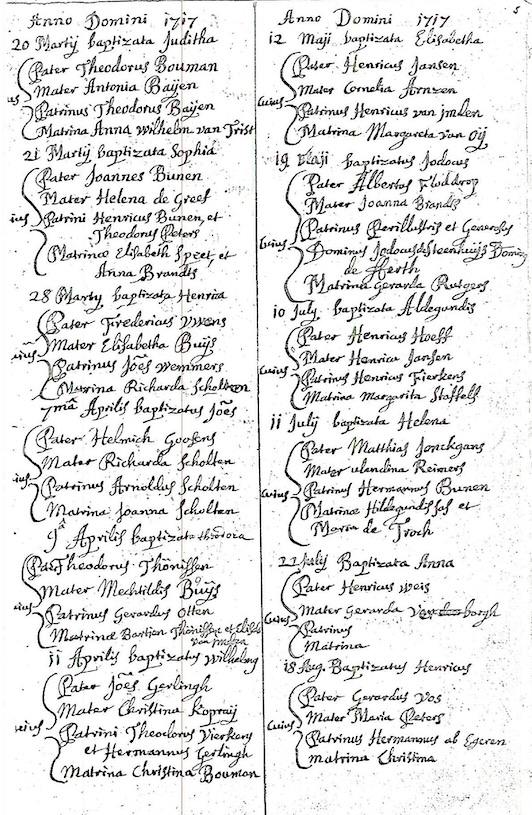 Anno Domini 1717
20 Martij baptizata Juditha
Pater Theodorus Bouman
Mater Antonia Baijen
Patrinus Theodorus Baijen
Matrina Anna Wilhelm van Trist
21 Martij baptizata Sophia
Pater Joannes Bunen
Mater Helena de Greef
Patrini Henricus Bunen, et
Theodorus Peters
Matrinæ Elisabeth Speet, et
Anna Brandts
28 Martij baptizata Henrica
Pater Fredericus
Mater Elisabetha Buijs
Patrinus Jões Wemmers
Matrina Richarda Scholten
7mâ Aprilis baptizatus Jões
Pater Helmich Goosens
Mater Richarda Scholten
Patrinus Arnoldus Scholten
Matrina Joanna Scholten
9â Aprilis baptizata theodora
Pater Theodorus Thönissen
Mater Mechtildis Buijs
Patrinus Gerardus Otten
Matrinæ Bartien Thönissen et
van
11 Aprilis baptizatus Wilhelmus
Pater Jões Gerlingh
Mater Christina Kopraij
Patrini Theodorus Vierkens
et Hermannus Gerlingh
Matrina Christina Bouman
5
Anno Domini 1717
12 Maji baptizata Elisabetha
Pater Henricus Jansen
Mater Cornelia Arnzen
cuius
Patrinus Henricus van
Matrina Margareta van Oij
19 Maji baptizatus Jodocus
Pater Albertus
Mater Joanna Brandts
cuius
Patrinus Perillustris et Generosus
Dominus Jodocus de Steenhuijs
de Herth
Matrina Gerarda Rutgers
10 July baptizata Aldegundis
Pater Henricus Hoeff
Mater Henrica Jansen
cuius
Patrinus Henricus Fierkens
Matrina Margarita Staffels
11 Julij baptizata Helena
Pater Matthias Jonckgans
Mater Reimers
cuius
Patrinus Hermannus Bunen
Matrinæ Hildegundis et
Maria de Troch
22 Julij Baptizata Anna
Pater Henricus Weis
Mater Gerarda
cuius
Patrinus
Matrina
18 Aug. Baptizatus Henricus
Pater Gerardus Vos
Mater Maria Peters
cuius
Patrinus Hermannus ab Egeren
Matrina Christina